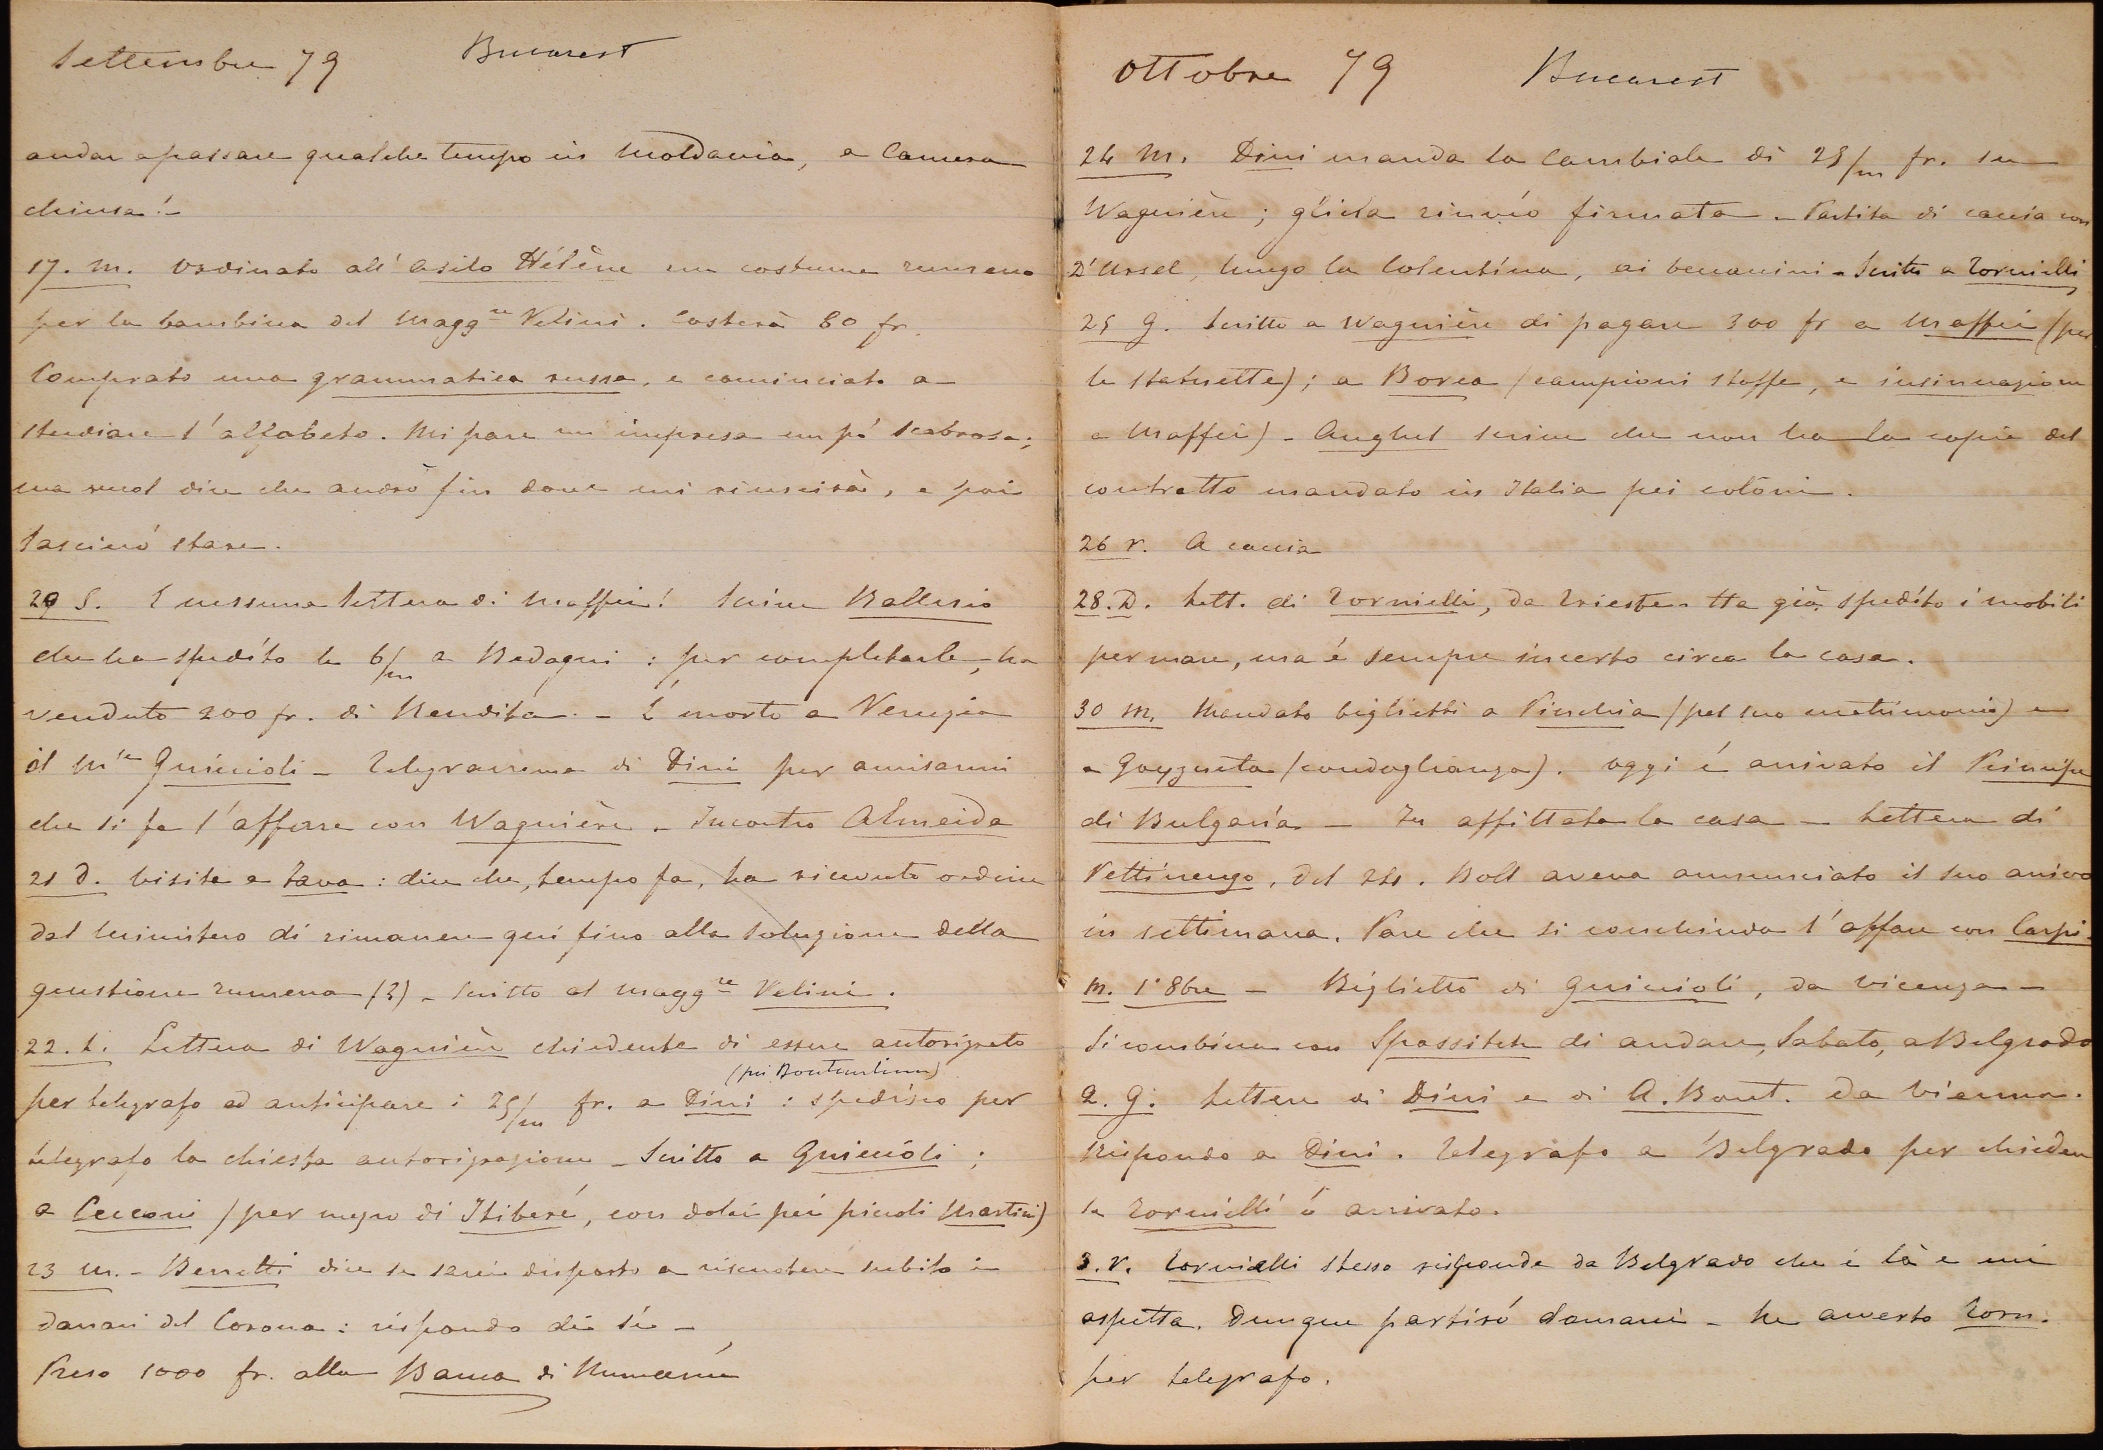 Settembre 79 Bucarest
andar a passare qualche tempo in Moldavia, a Camera
chiusa! –
17. M. Ordinato all'Asilo Hélène un costume rumeno
per la bambina del Magg.re Velini. Costerà 80 fr.
Comprato una grammatica russa, e cominciato a
studiare l'alfabeto. Mi pare un impresa un pó scabrosa;
ma vuol dire che andrò fin dove mi riuscirà, e poi
lascieró stare.
20 S. E nessuna lettera di Maffei! Scrive Ballerio
che ha spedito le 6/m a Bedagni: per completarle, ha
venduto 200 fr. di Rendita. – É morto a Venezia
il M.se Guiccioli – Telegramma di Dini per avvisarmi
che si fa l'affare con Wagnière – Incontro Almeida
21 D. Visita a Fava: dice che, tempo fa, ha ricevuto ordine
dal Ministero di rimanere qui fino alla soluzione della
questione rumena (?) – Scritto al Magg.re Velini.
22. L. Lettera di Wagnière chiedente di essere autorizzato
per telegrafo ad anticipare i 25/m fr. a Dini : spedisco per
telegrafo la chiesta autorizzazione – Scritto a Guiccioli ;
a Cecconi (per mezzo di Itiberé, con dolci pei piccoli Martini)
23 M. – Berretti dice se sarei disposto a riscuotere subito i
danari del Corona : rispondo di sí –
Preso 1000 fr. alla Banca di Rumania
Ottobre 79 Bucarest
24 M. Dini manda la cambiale di 25/m fr. su
Wagnière ; gliela rinvío firmata – Partita di caccia con
D'Ursel, lungo la Colentina, ai beccaccini – Scritto a Tornielli
25 G. Scritto a Wagnière di pagare 300 fr a Maffei (per
le statuette) ; a Borea (campioni stoffe, e insinuazione
a Maffei) – Anghel scrive che non ha la copia del
contratto mandato in Italia pei coloni.
26 V. A caccia
28. D. Lett. di Tornielli, da Trieste. Ha già spedito i mobili
per mare, ma é sempre incerto circa la casa.
30 M. Mandato biglietti a Pinchia (pel suo matrimonio) e
a Goyzueta (condoglianza). Oggi é arrivato il Principe
di Bulgaria – affittata la casa – Lettera di
Pettinengo, del 24. Boll aveva annunciato il suo arrivo
in settimana. Pare che si conchiuda l'affare con Carpi.
M. 1° 8bre – Biglietto di Guiccioli, da Vicenza –
Si combina con Spassitch di andare, Sabato, a Belgrado
2. G. Lettere di Dini e di A. Bout. da Vienna.
Rispondo a Dini. Telegrafo a Belgrado per chiedere
se Tornielli é arrivato.
3. V. Tornielli stesso risponde da Belgrado che é là e mi
aspetta. Dunque partiró domani – ne avverto Torn.
per telegrafo.